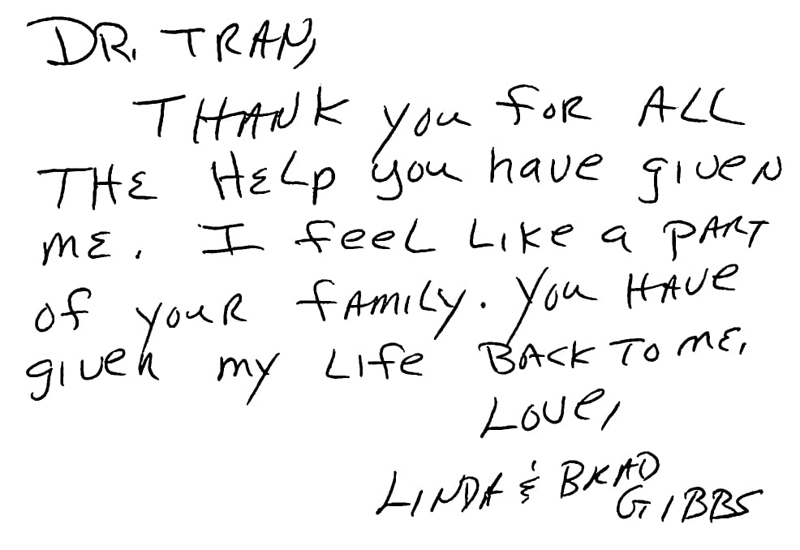 DR. TRAN,
THANK you FOR ALL
THE HELP you have given
ME. I feel Like a PART
of youR fAMILY. you HAVE
given my Life BACK TO ME.
Love,
LINDA & BRAD
GIBBS